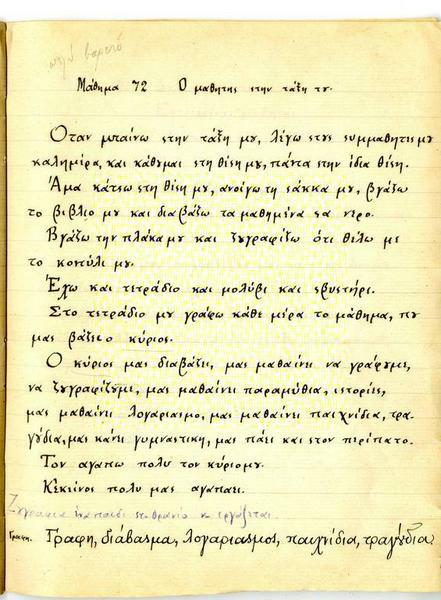 πολύ βαρετό
Μάθημα 72 Ο μαθητης στην τάξη τυ.
Οταν μπαίνω στην τάξη μυ, λέγω στυς συμμαθητες μυ
καλημέρα, και κάθυμαι στη θέση μυ, πάντα στην ίδια θέση.
Άμα κάτσω στη θέση μυ, ανοίγω τη σάκκα μυ, βγάζω
το βιβλιο μυ και διαβάζω τα μαθημένα σα νερο.
Βγάζω την πλάκα μυ και ζυγραφίζω ότι θέλω με
το κοντύλι μυ.
Έχω και τετράδιο και μολύβι και σβυστήρι.
Στο τετράδιο μυ γράφω κάθε μέρα το μάθημα, πυ
μας βάζει ο κύριος.
Ο κύριος μας διαβάζει, μας μαθαίνει να γράφυμε,
να ζυγραφίζυμε, μας μαθαίνει παραμύθια, ιστορίες,
μας μαθαίνει λογαριασμο, μας μαθαίνει παιχνίδια, τρα-
γύδια, μας κάνει γυμναστικη, μας πάει και στον περίπατο.
Τον αγαπω πολυ τον κύριο μυ.
Κ' εκείνος πολυ μας αγαπαει.
Ζυγραφια ένα παιδι στο θρανίο κ εργάζεται.
Γραφη. Γραφη, διάβασμα, λογαριασμος, παιχνίδια, τραγύδια.